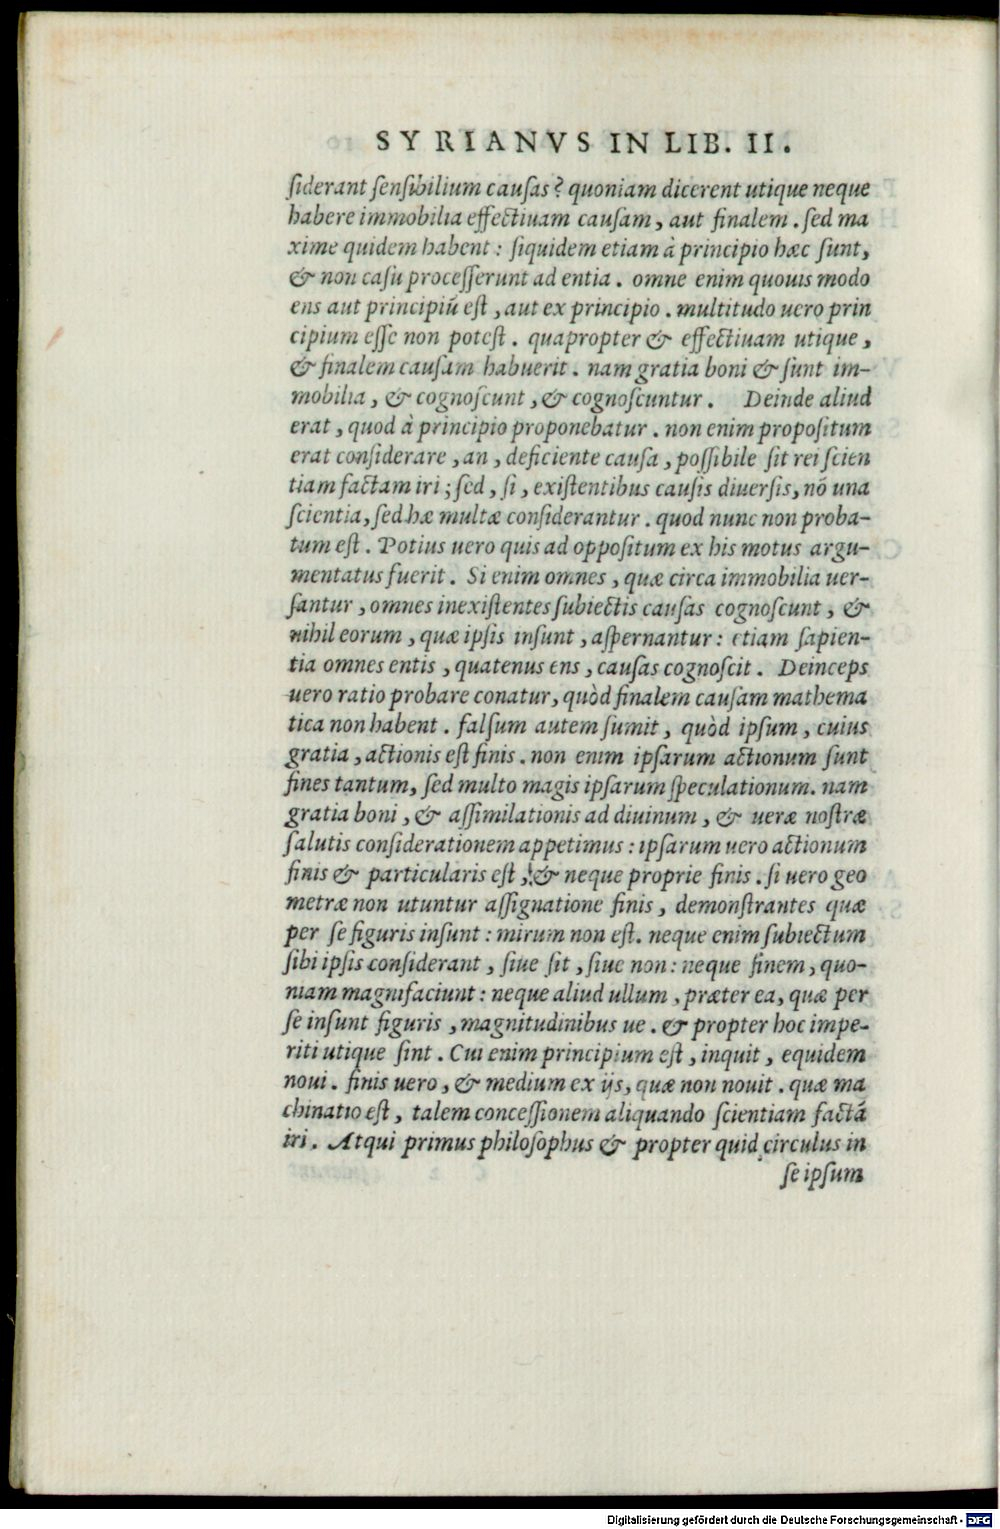 SYRIANVS IN LIB. II.
siderant sensibilium causas? quoniam dicerent utique neque
habere immobilia effectiuam causam, aut finalem. sed ma
xime quidem habent: siquidem etiam à principio hæc sunt,
& non casu processerunt ad entia. omne enim quouis modo
ens aut principiũ est, aut ex principio. multitudo uero prin
cipium esse non potest. quapropter & effectiuam utique,
& finalem causam habuerit. nam gratia boni & sunt im-
mobilia, & cognoscunt, & cognoscuntur. Deinde aliud
erat, quod à principio proponebatur. non enim propositum
erat considerare, an, deficiente causa, possibile sit rei scien
tiam factam iri; sed, si, existentibus causis diuersis, nõ una
scientia, sed hæ multæ considerantur. quod nunc non proba-
tum est. Potius uero quis ad oppositum ex his motus argu-
mentatus fuerit. Si enim omnes, quæ circa immobilia uer-
santur, omnes inexistentes subiectis causas cognoscunt, &
nihil eorum, quæ ipsis insunt, aspernantur: etiam sapien-
tia omnes entis, quatenus ens, causas cognoscit. Deinceps
uero ratio probare conatur, quòd finalem causam mathema
tica non habent. falsum autem sumit, quòd ipsum, cuius
gratia, actionis est finis. non enim ipsarum actionum sunt
fines tantum, sed multo magis ipsarum speculationum. nam
gratia boni, & assimilationis ad diuinum, & ueræ nostræ
salutis considerationem appetimus: ipsarum uero actionum
finis & particularis est, & neque proprie finis. si uero geo
metræ non utuntur assignatione finis, demonstrantes quæ
per se figuris insunt: mirum non est. neque enim subiectum
sibi ipsis considerant, siue sit, siue non: neque finem, quo-
niam magnifaciunt: neque aliud ullum, præter ea, quæ per
se insunt figuris, magnitudinibus ue. & propter hoc impe-
riti utique sint. Cui enim principium est, inquit, equidem
noui. finis uero, & medium ex ijs, quæ non nouit. quæ ma
chinatio est, talem concessionem aliquando scientiam factã
iri. Atqui primus philosophus & propter quid circulus in
se ipsum
Digitalisierung gefördert durch die Deutsche Forschungsgemeinschaft - DFG